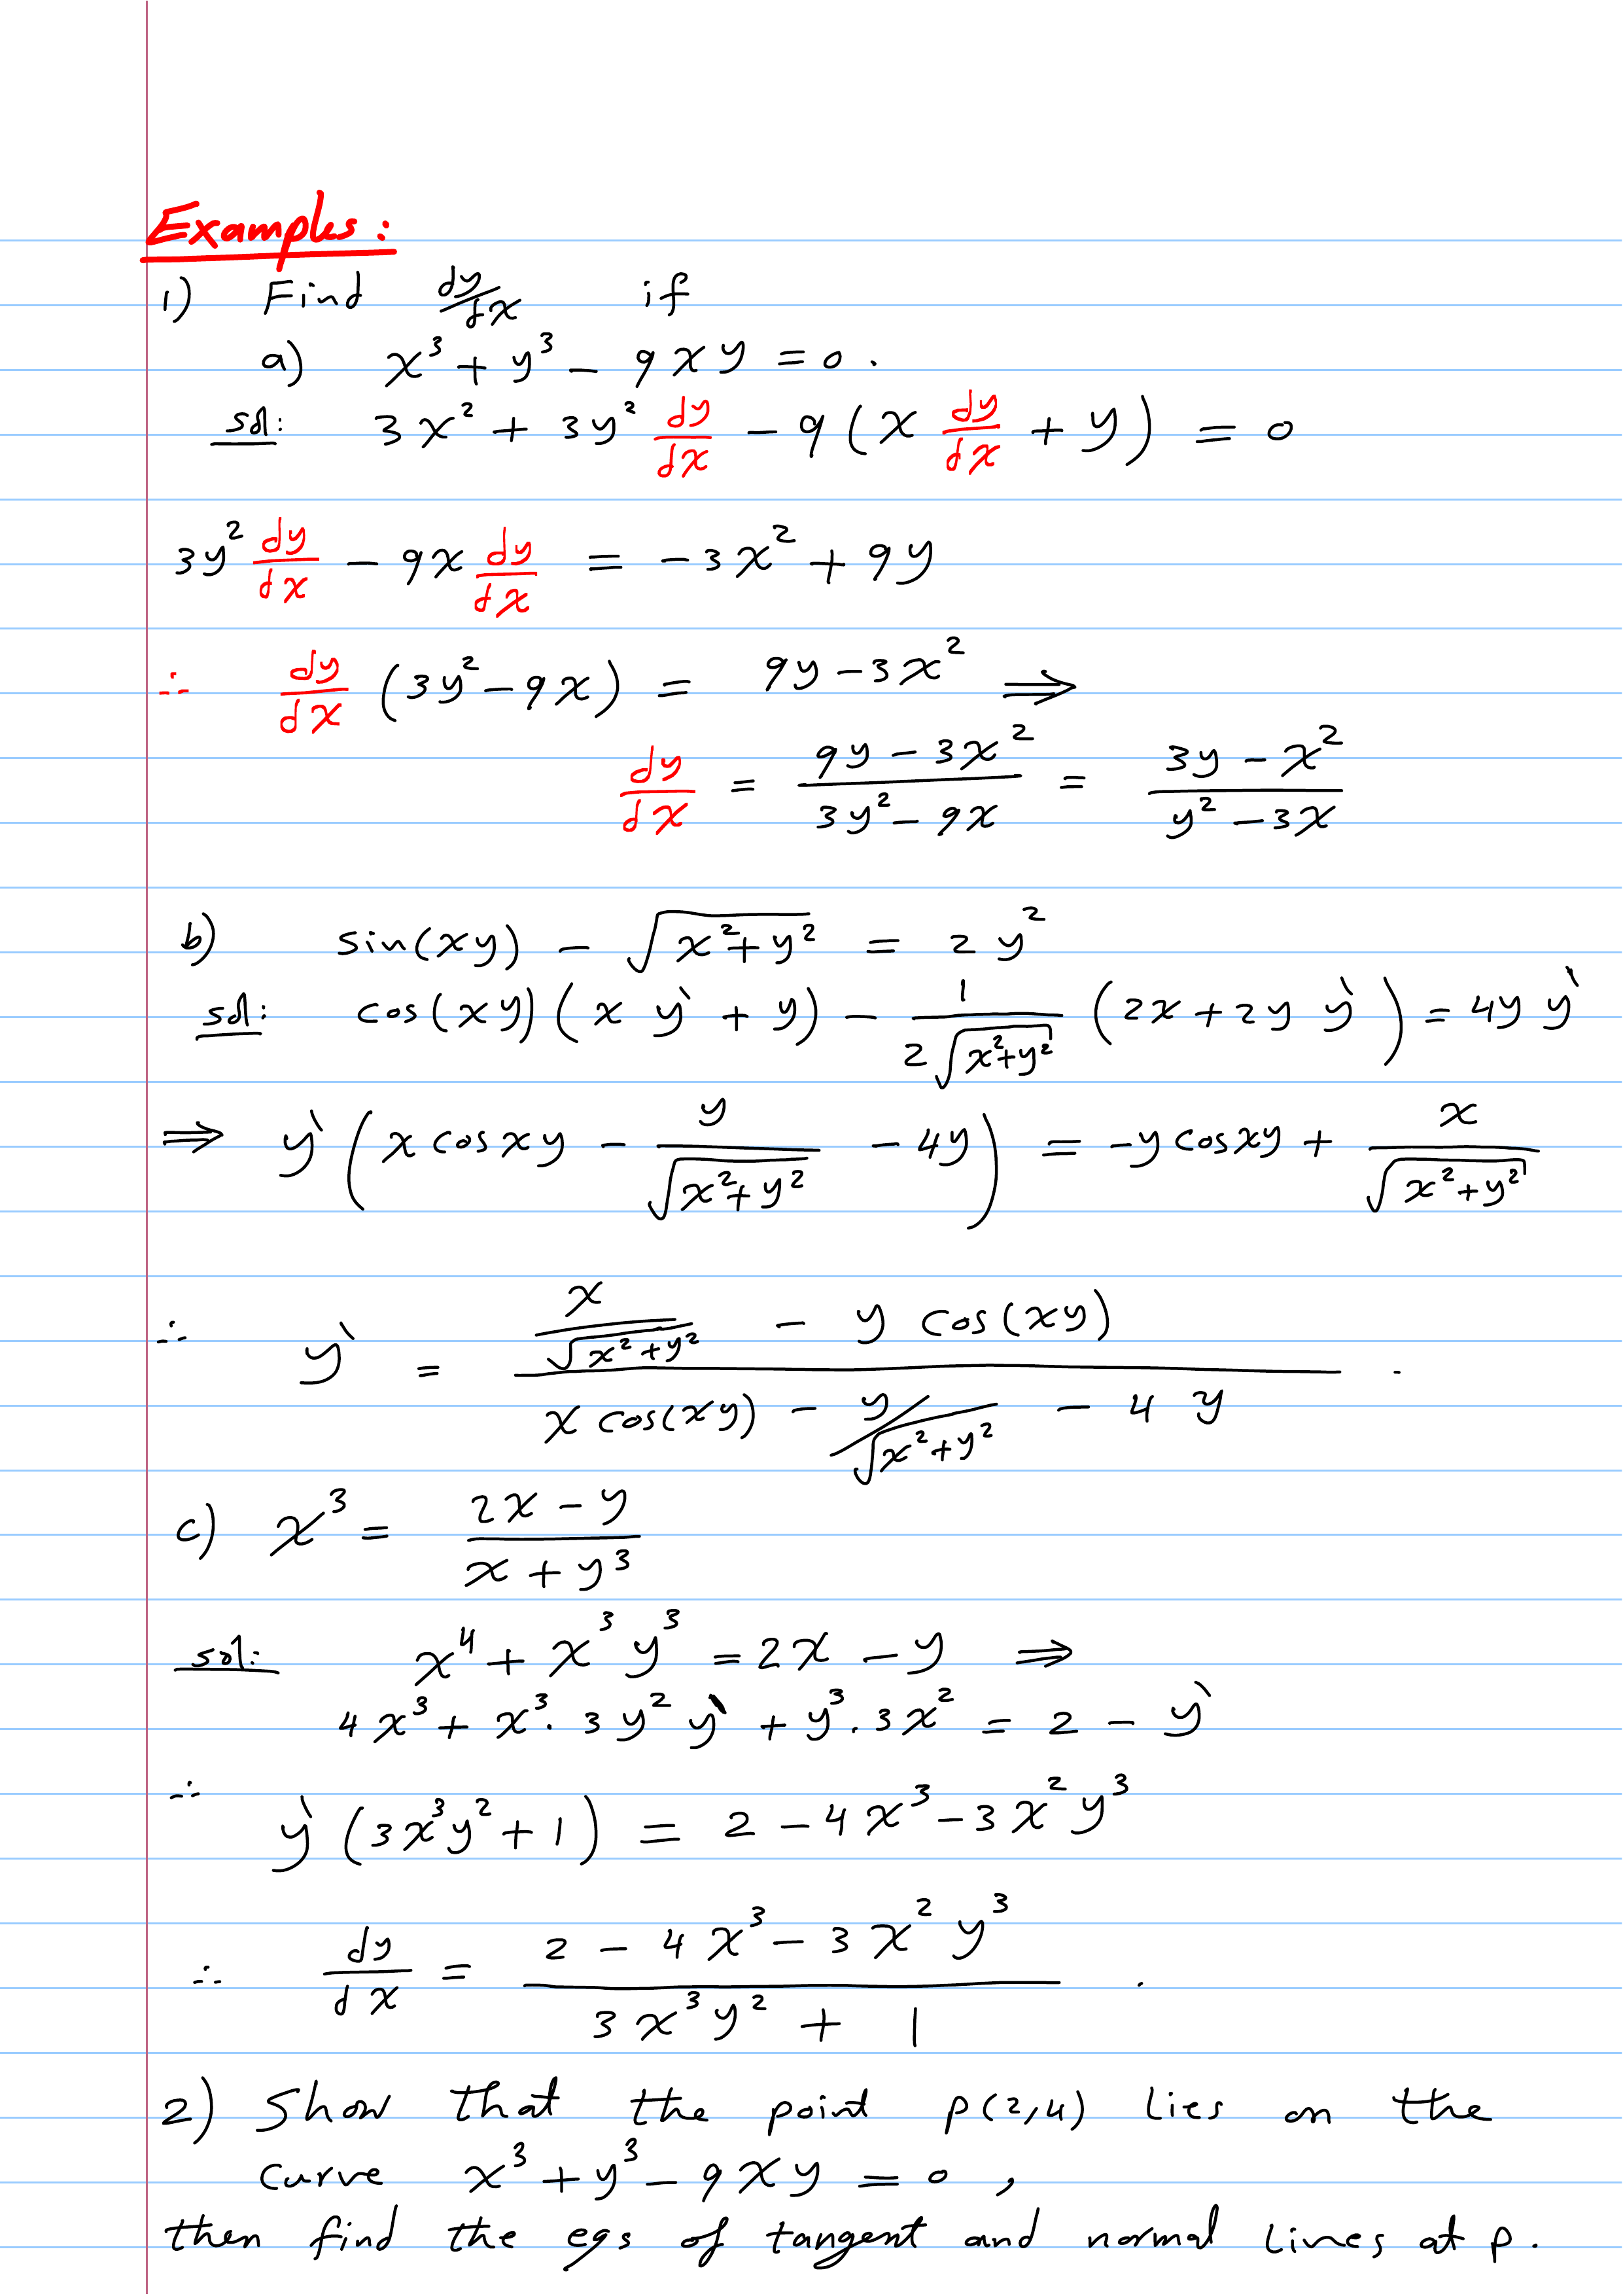 Examples:
1) Find dy/dx if
a) x³ + y³ - 9xy = 0.
sol: 3x² + 3y² dy/dx - 9(x dy/dx + y) = 0
3y² dy/dx - 9x dy/dx = -3x² + 9y
∴ dy/dx (3y² - 9x) = 9y - 3x² ⇒
dy/dx = (9y - 3x²)/(3y² - 9x) = (3y - x²)/(y² - 3x)
b) sin(xy) - √(x² + y²) = 2y²
sol: cos(xy)(x y` + y) - 1/(2√(x²+y²)) (2x + 2y y`) = 4y y`
⇒ y`(x cos xy - y/√(x²+y²) - 4y) = -y cos xy + x/√(x²+y²)
∴ y` = (x/√(x²+y²) - y cos(xy))/(x cos(xy) - y/√(x²+y²) - 4y) .
c) x³ = (2x - y)/(x + y³)
sol: x⁴ + x³y³ = 2x - y ⇒
4x³ + x³. 3y² y` + y³. 3x² = 2 - y`
∴
y`(3x³y² + 1) = 2 - 4x³ - 3x²y³
∴ dy/dx = (2 - 4x³ - 3x²y³)/(3x³y² + 1) .
2) Show that the point p(2,4) lies on the
curve x³ + y³ - 9xy = 0 ,
then find the eqs of tangent and normal lines at p.